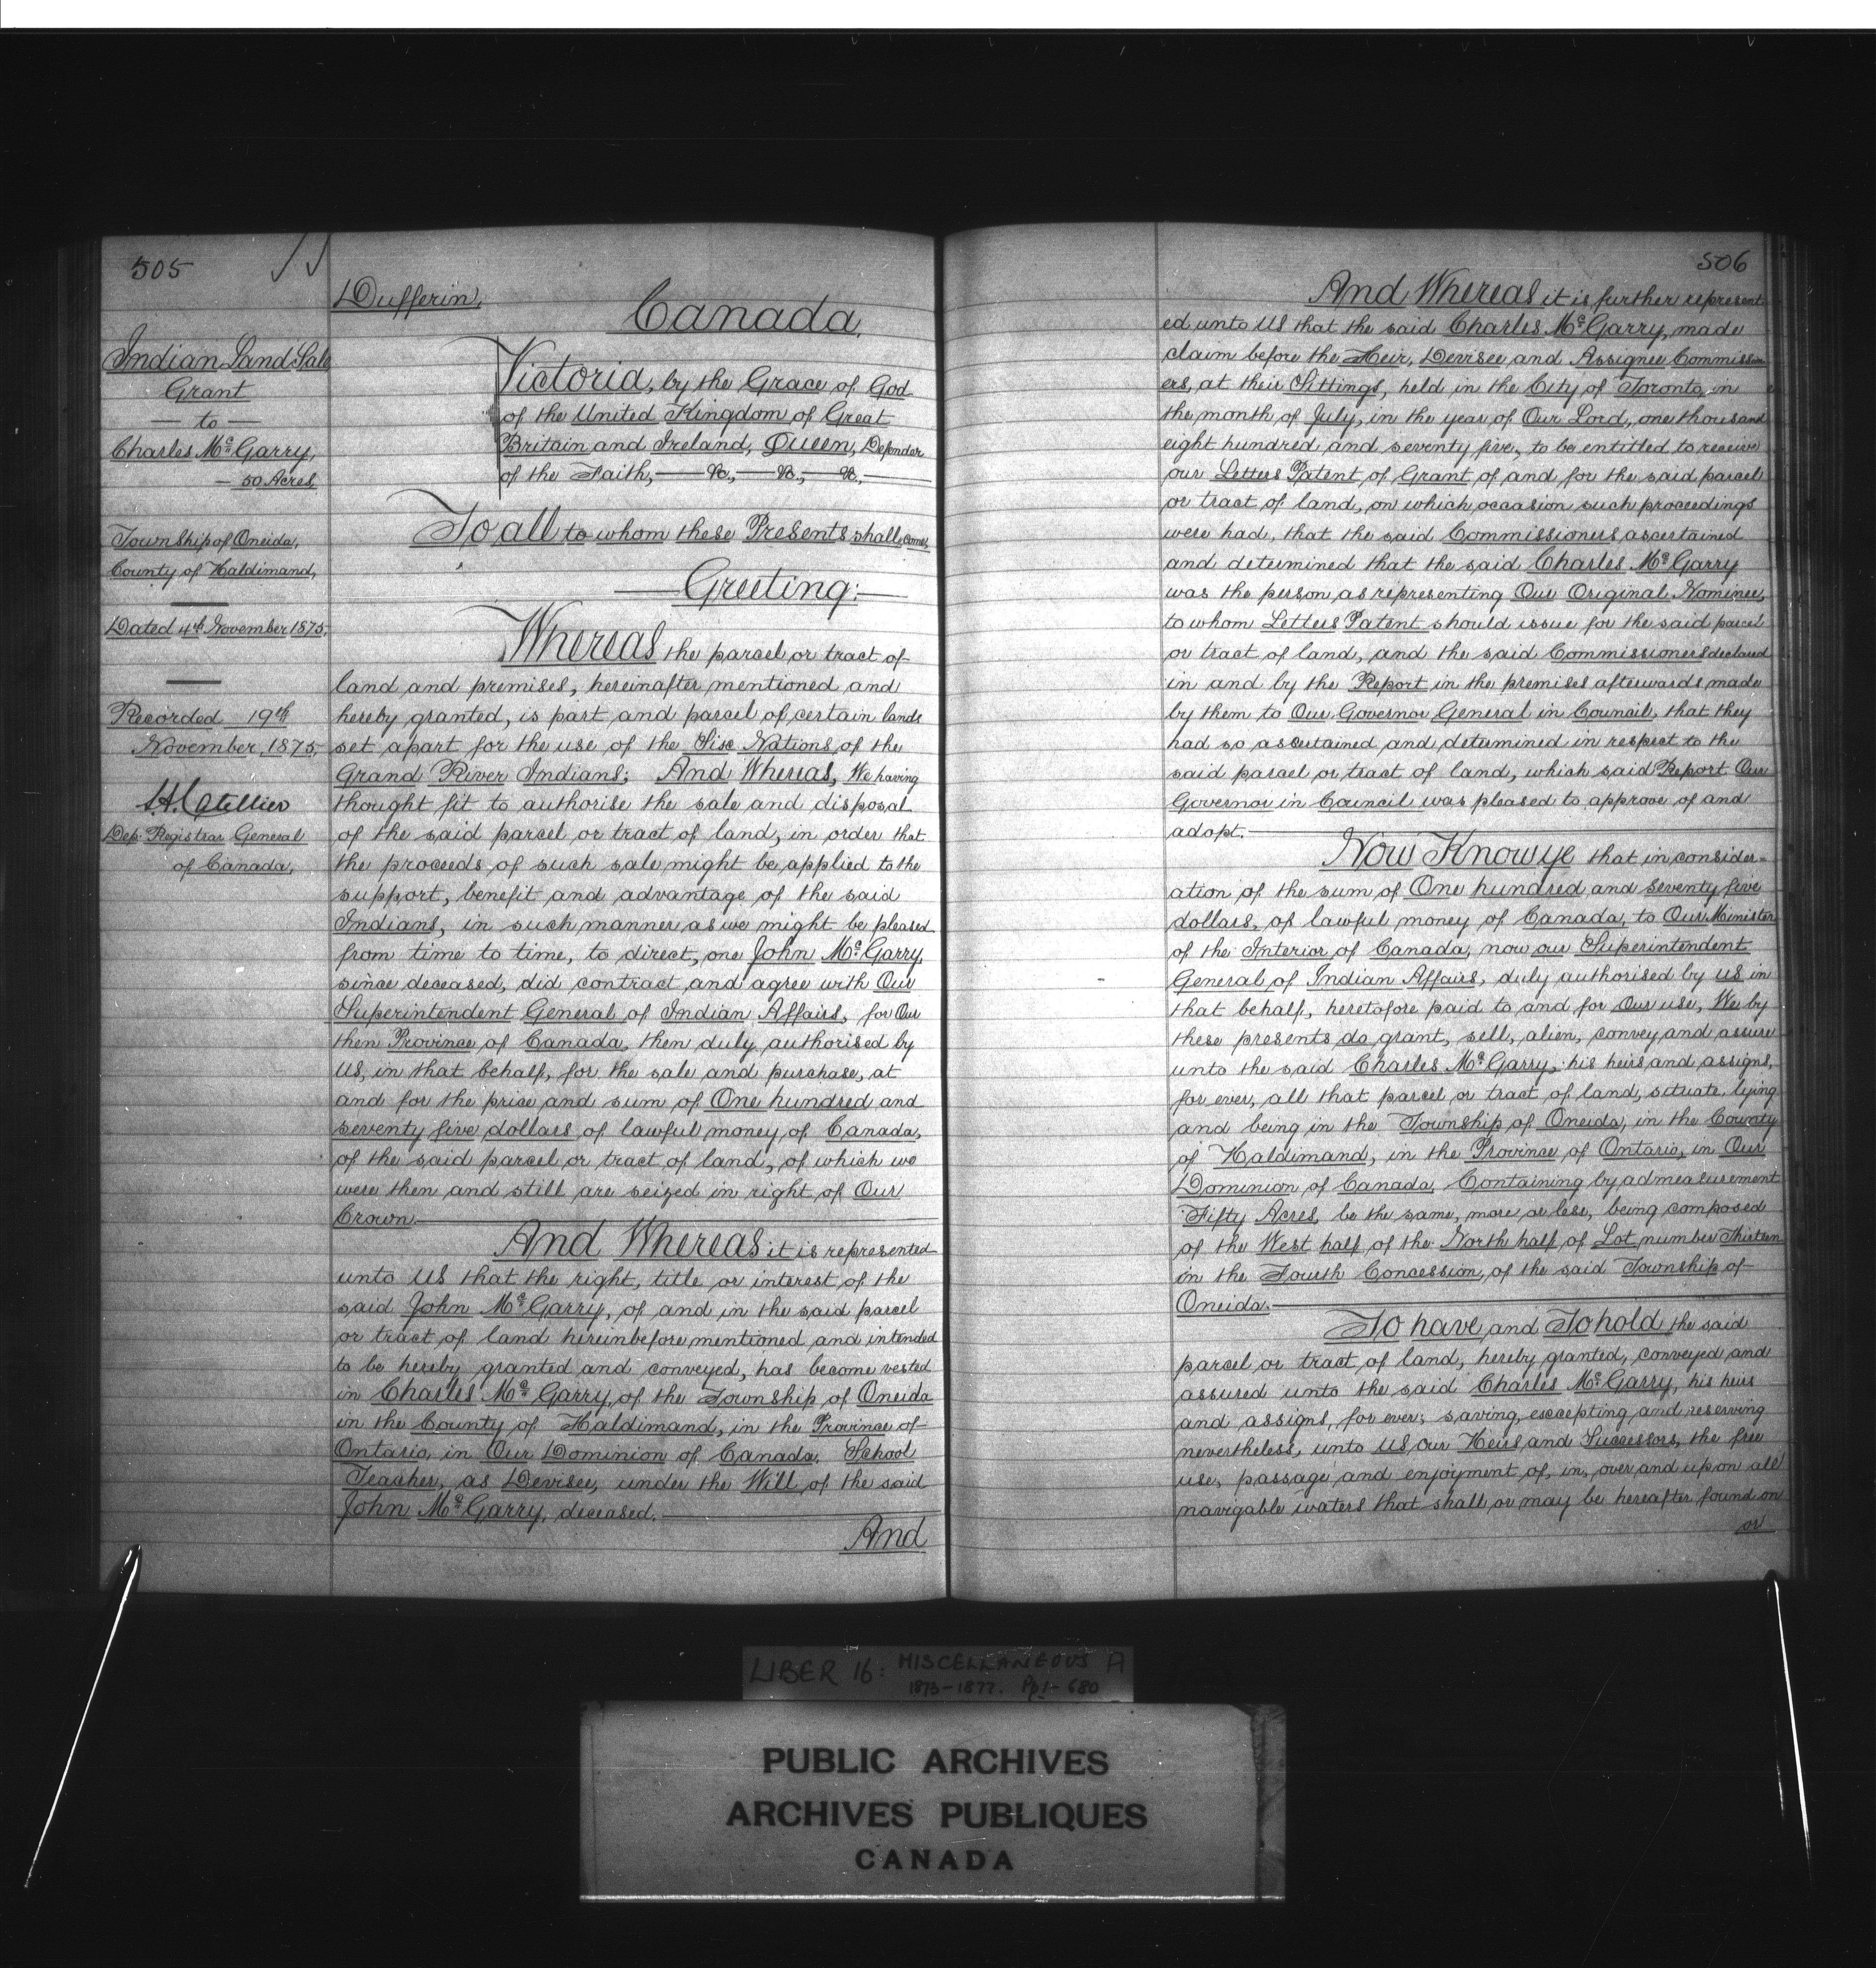 505
Indian Land Sale
Grant
— to —
Charles McGarry,
— 50 Acres,
Township of Oneida,
County of Haldimand,
Dated 4th November 1875,
Recorded 19th
November, 1875,
Dep. Registrar General
of Canada,
Dufferin,
Canada,
Victoria, by the Grace of God
of the United Kingdom of Great
Britain and Ireland, Queen, Defender
of the Faith, — &c., — &c., — &c., —
To all to whom these Presents shall come,
— Greeting: —
Whereas the parcel or tract of
land and premises, hereinafter mentioned and
hereby granted, is part and parcel of certain lands
set apart for the use of the Six Nations of the
Grand River Indians; And Whereas, We having
thought fit to authorise the sale and disposal
of the said parcel or tract of land, in order that
the proceeds of such sale might be applied to the
support, benefit and advantage of the said
Indians, in such manner as we might be pleased
from time to time, to direct, one John McGarry,
since deceased, did contract and agree with Our
Superintendent General of Indian Affairs, for Our
then Province of Canada, then duly authorised by
us, in that behalf, for the sale and purchase, at
and for the price and sum of One hundred and
seventy five dollars of lawful money of Canada,
of the said parcel or tract of land, of which we
were then and still are seized in right of Our
Crown. —
And Whereas it is represented
unto us that the right, title or interest of the
said John McGarry, of and in the said parcel
or tract of land hereinbefore mentioned and intended
to be hereby granted and conveyed, has become vested
in Charles McGarry, of the Township of Oneida
in the County of Haldimand, in the Province of
Ontario, in Our Dominion of Canada, School
Teacher, as Devisee, under the Will of the said
John McGarry, deceased. —
And
506
And Whereas it is further represent
ed unto us that the said Charles McGarry, made
claim before the Heir, Devisee and Assignee Commission
ers, at their Sittings, held in the City of Toronto, in
the month of July, in the year of Our Lord, one thousand
eight hundred and seventy five, to be entitled to receive
our Letters Patent of Grant of and for the said parcel
or tract of land, on which occasion such proceedings
were had, that the said Commissioners ascertained
and determined that the said Charles McGarry
was the person as representing Our Original Nominee,
to whom Letters Patent should issue for the said parcel
or tract of land, and the said Commissioners declared
in and by the Report in the premises afterwards made
by them to Our Governor General in Council, that they
had so ascertained and determined in respect to the
said parcel or tract of land, which said Report Our
Governor in Council was pleased to approve of and
adopt. —
Now Know ye that in consider-
ation of the sum of One hundred and seventy five
dollars, of lawful money of Canada, to Our Minister
of the Interior of Canada, now our Superintendent
General of Indian Affairs, duly authorised by us in
that behalf, heretofore paid to and for our use, We by
these presents do grant, sell, alien, convey and assure
unto the said Charles McGarry, his heirs and assigns,
for ever, all that parcel or tract of land, situate lying
and being in the Township of Oneida, in the County
of Haldimand, in the Province of Ontario, in Our
Dominion of Canada, Containing by admeasurement
Fifty Acres, be the same, more or less, being composed
of the West half of the North half of Lot number Thirteen
in the Fourth Concession, of the said Township of
Oneida. —
To have and To hold the said
parcel or tract of land, hereby granted, conveyed and
assured unto the said Charles McGarry, his heirs
and assigns, for ever; saving, excepting and reserving
nevertheless, unto us, our Heirs and Successors, the free
use, passage and enjoyment of, in, over and upon all
navigable waters that shall or may be hereafter found on
or
LIBER 16: MISCELLANEOUS A
1873-1877. Pp 1-680
PUBLIC ARCHIVES
ARCHIVES PUBLIQUES
CANADA